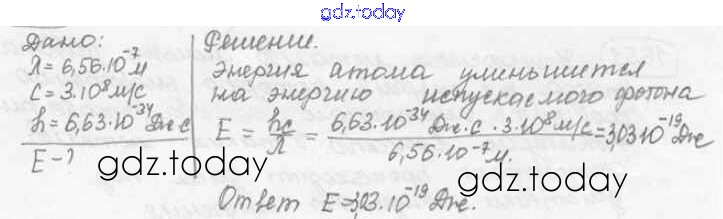 gdz.today
Дано:
λ = 6,56·10⁻⁷ м
c = 3·10⁸ м/с
h = 6,63·10⁻³⁴ Дж·с
E - ?
Решение.
Энергия атома уменьшится
на энергию испускаемого фотона
E = hc/λ = 6,63·10⁻³⁴ Дж·с · 3·10⁸ м/с / 6,56·10⁻⁷ м. = 3,03·10⁻¹⁹ Дж
gdz.today
gdz.today
Ответ E = 3,03·10⁻¹⁹ Дж.